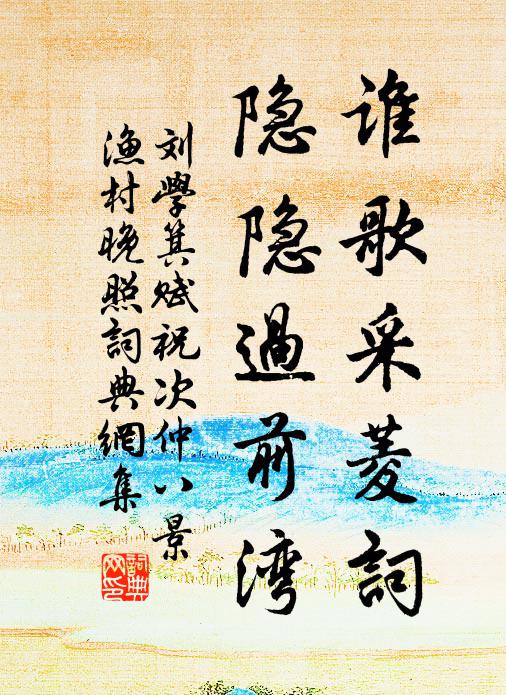 谁歌采菱词
隐隐過前湾
刘學箕赋祝次仲八景
渔村晚照詞典網集
詞典
网印